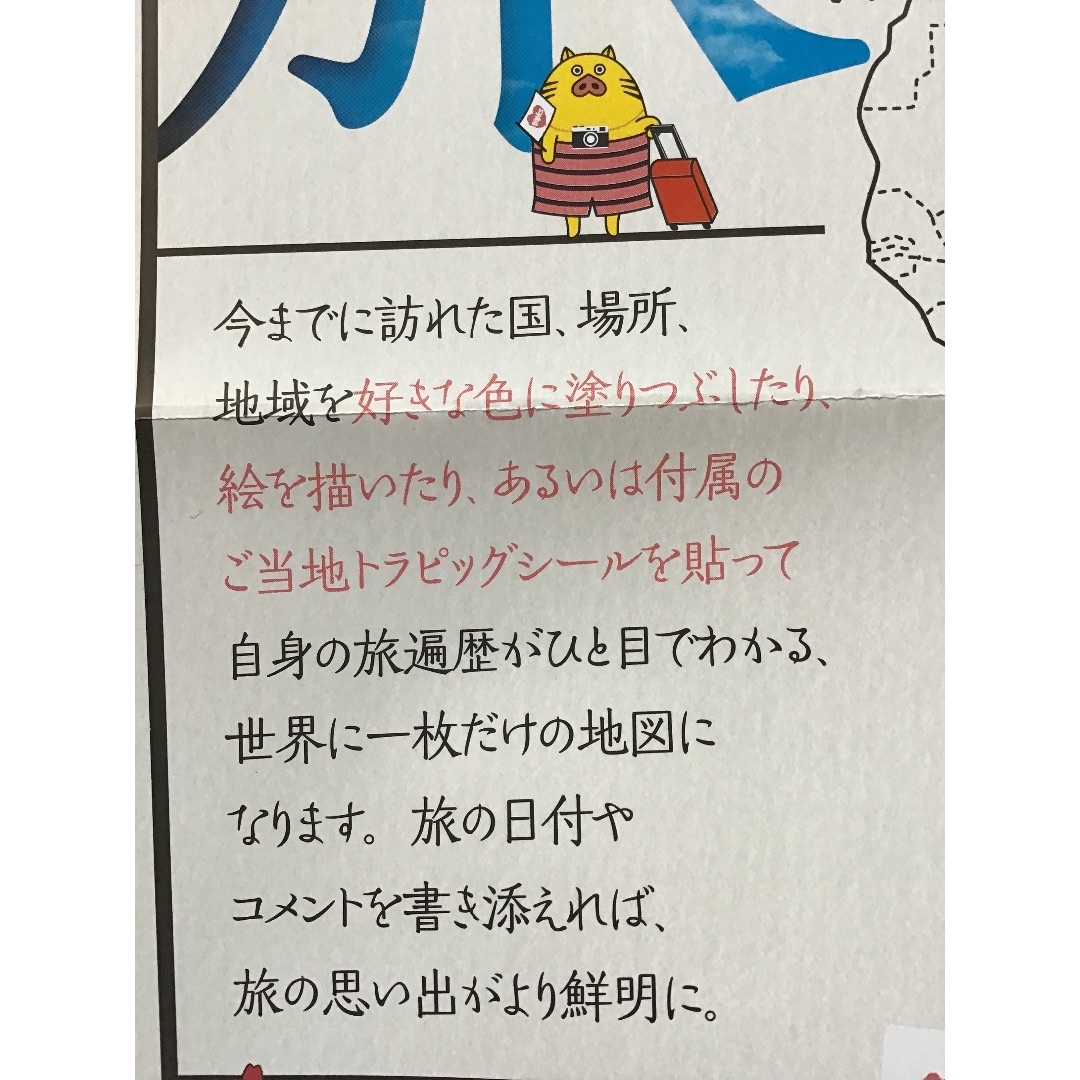 旅
今までに訪れた国、場所、
地域を好きな色に塗りつぶしたり、
絵を描いたり、あるいは付属の
ご当地トラピッグシールを貼って
自身の旅遍歴がひと目でわかる、
世界に一枚だけの地図に
なります。旅の日付や
コメントを書き添えれば、
旅の思い出がより鮮明に。